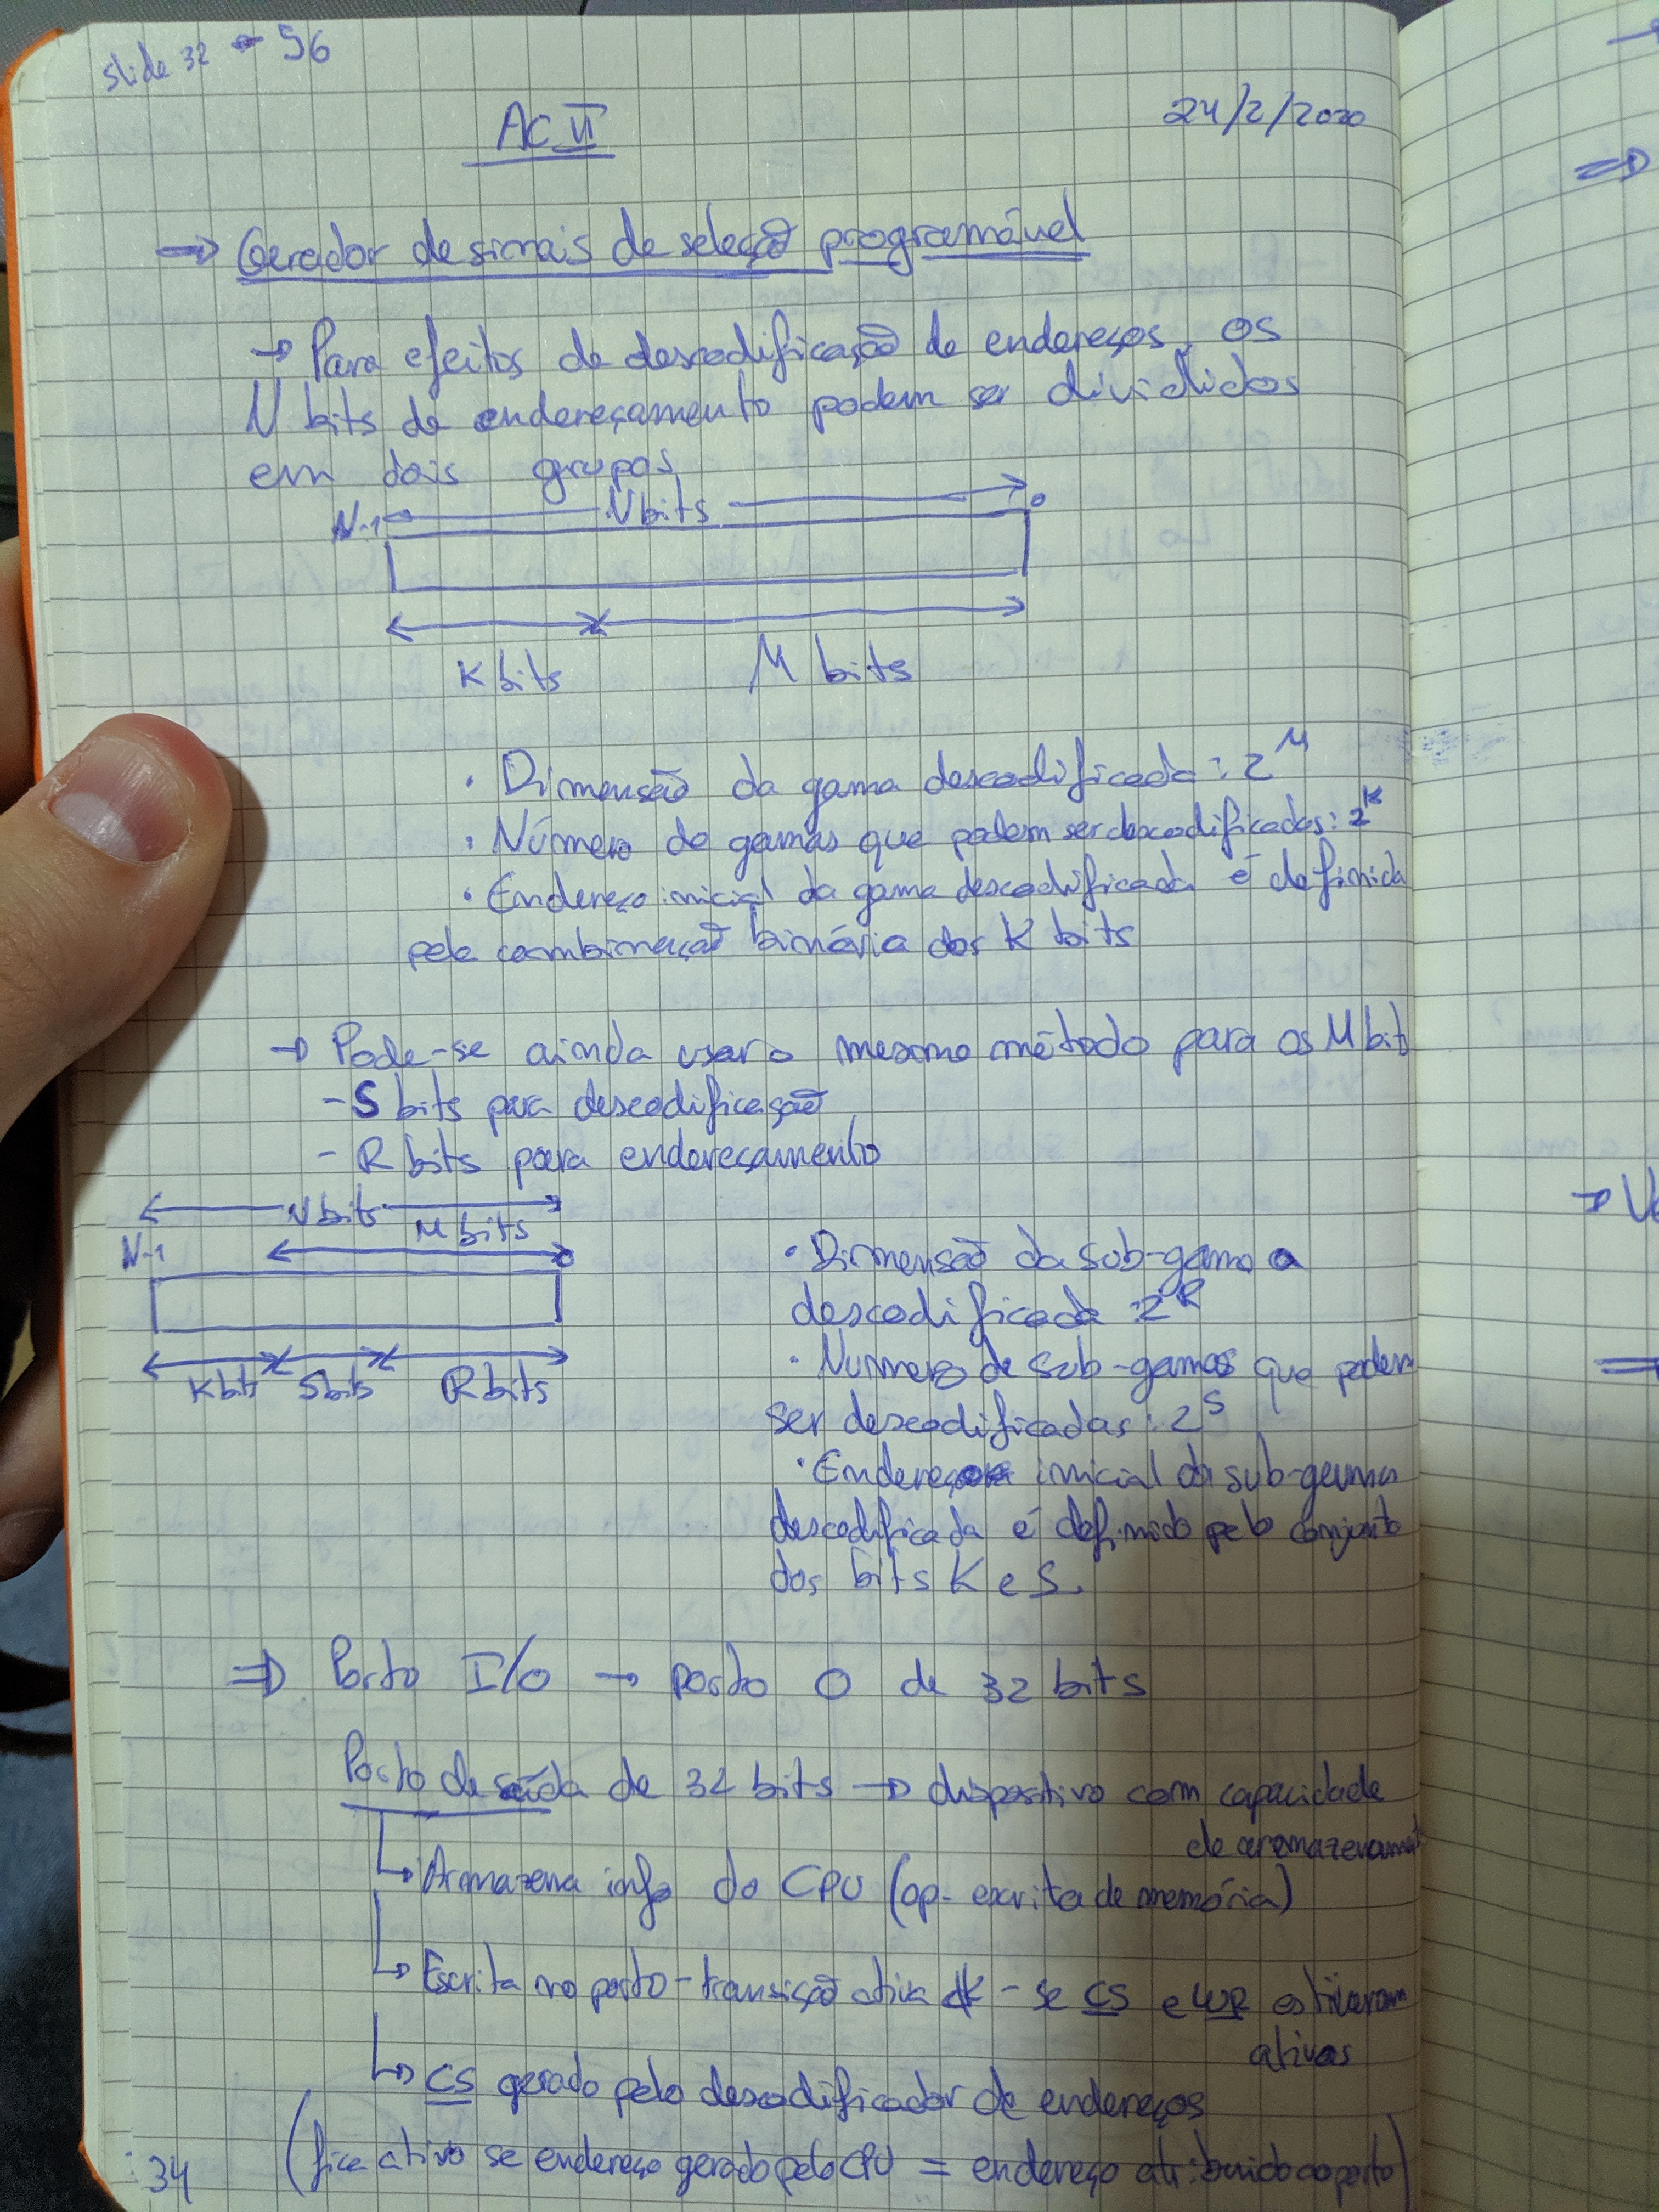 slide 32 - 56
AC II
24/2/2020
⇒ Gerador de sinais de seleção programável
→ Para efeitos de descodificação de endereços, os
N bits de endereçamento podem ser divididos
em dois grupos
N-1 N bits 0
K bits M bits
· Dimensão da gama descodificada: 2^M
· Número de gamas que podem ser descodificadas: 2^K
· Endereço inicial da gama descodificada é definida
pela combinação binária dos K bits
→ Pode-se ainda usar o mesmo método para os M bit
- S bits para descodificação
- R bits para endereçamento
N bits
M bits
N-1 0
K bits S bits R bits
· Dimensão da sub-gama a
descodificada: 2^R
· Número de sub-gamas que podem
ser descodificadas: 2^S
· Endereço inicial da sub-gama
descodificada é definido pelo conjunto
dos bits K e S.
⇒ Porto I/O → porto O de 32 bits
Porto de saída de 32 bits → dispositivo com capacidade
de armazenament
↳ Armazena info do CPU (op. escrita de memória)
↳ Escrita no porto - transição ativa - se CS e WR estiverem
ativos
↳ CS gerado pelo descodificador de endereços
(fica ativo se endereço gerado pelo CPU = endereço atribuido ao porto)
34